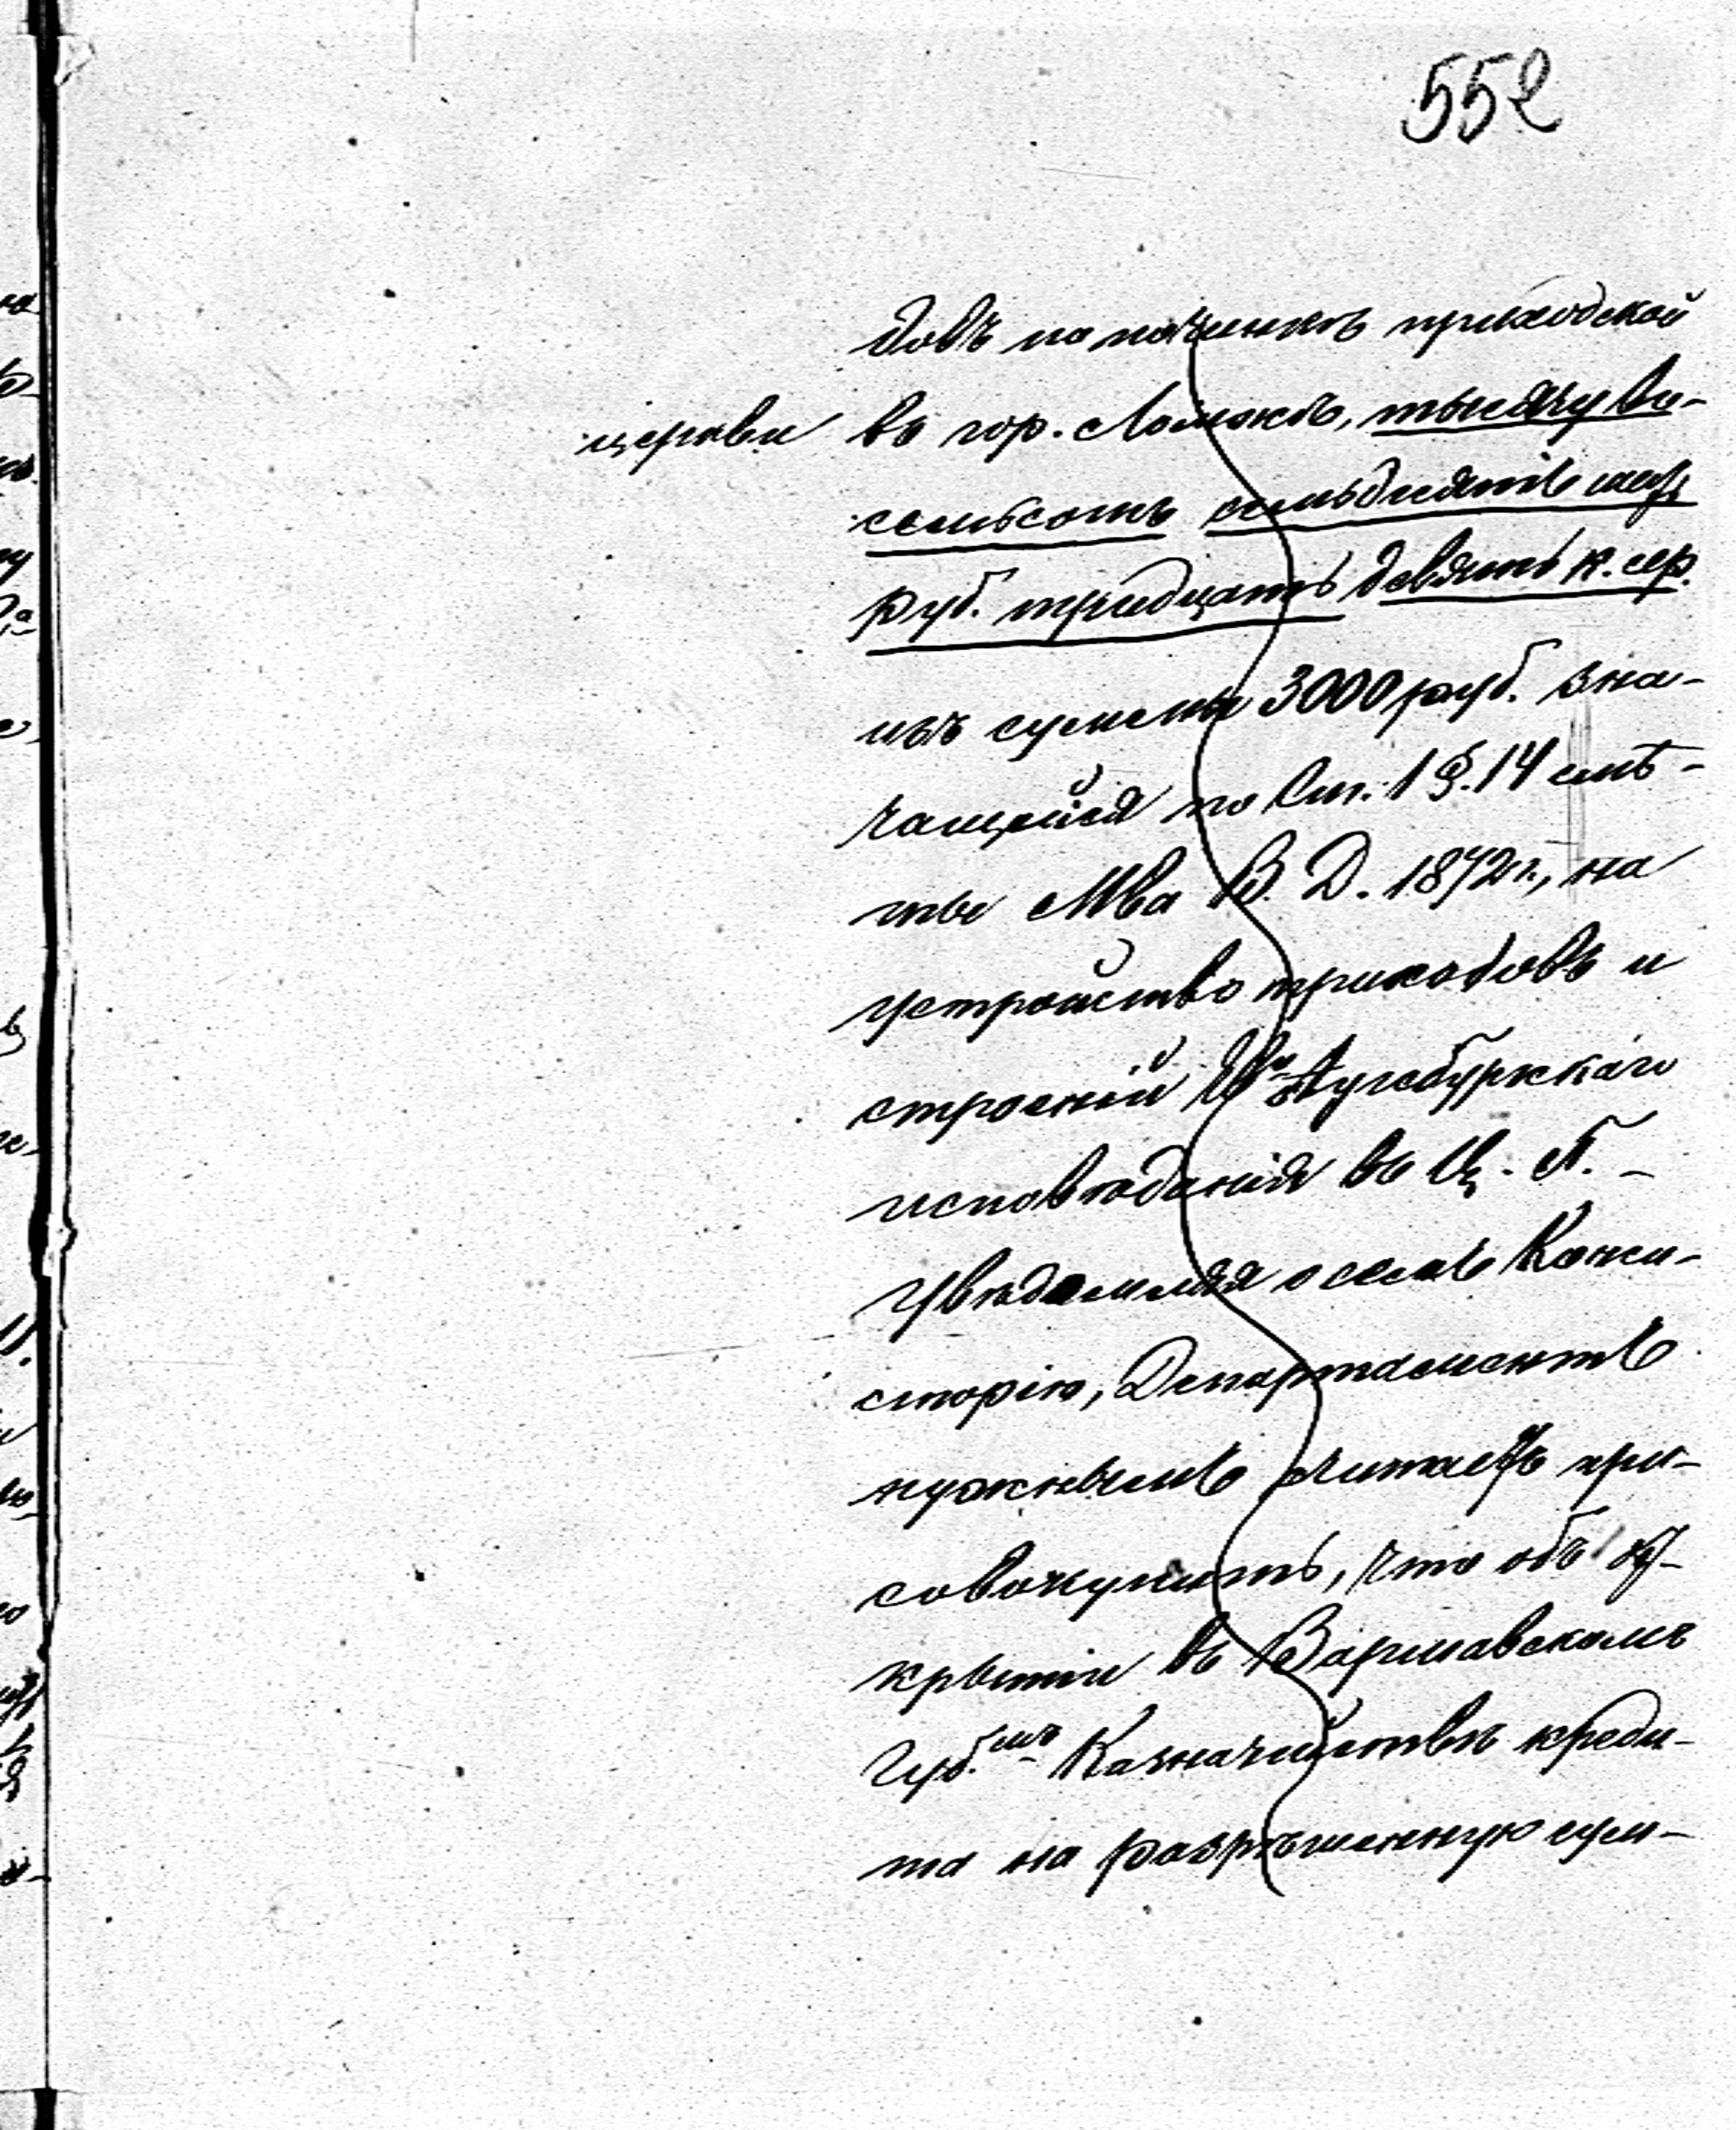 552
довъ по починкѣ приходской
церкви въ гор. Ломжѣ, тысячу во-
семьсотъ семьдесятъ
руб. тридцать девять к. сер.
изъ суммы 3000 руб. зна-
чащейся по Ст. 1 §. 14 смѣ-
ты М-ва В. Д. 1872 г., на
устройство приходовъ и
строеній Ев. Аугсбургскаго
исповѣданія въ Ц. П. –
Увѣдомляя о семъ Конси-
сторію, Департаментъ
нужнымъ считаетъ при-
совокупить, что объ от-
крытіи въ Варшавскомъ
Губ.мъ Казначействѣ креди-
та на разрѣшенную сум-